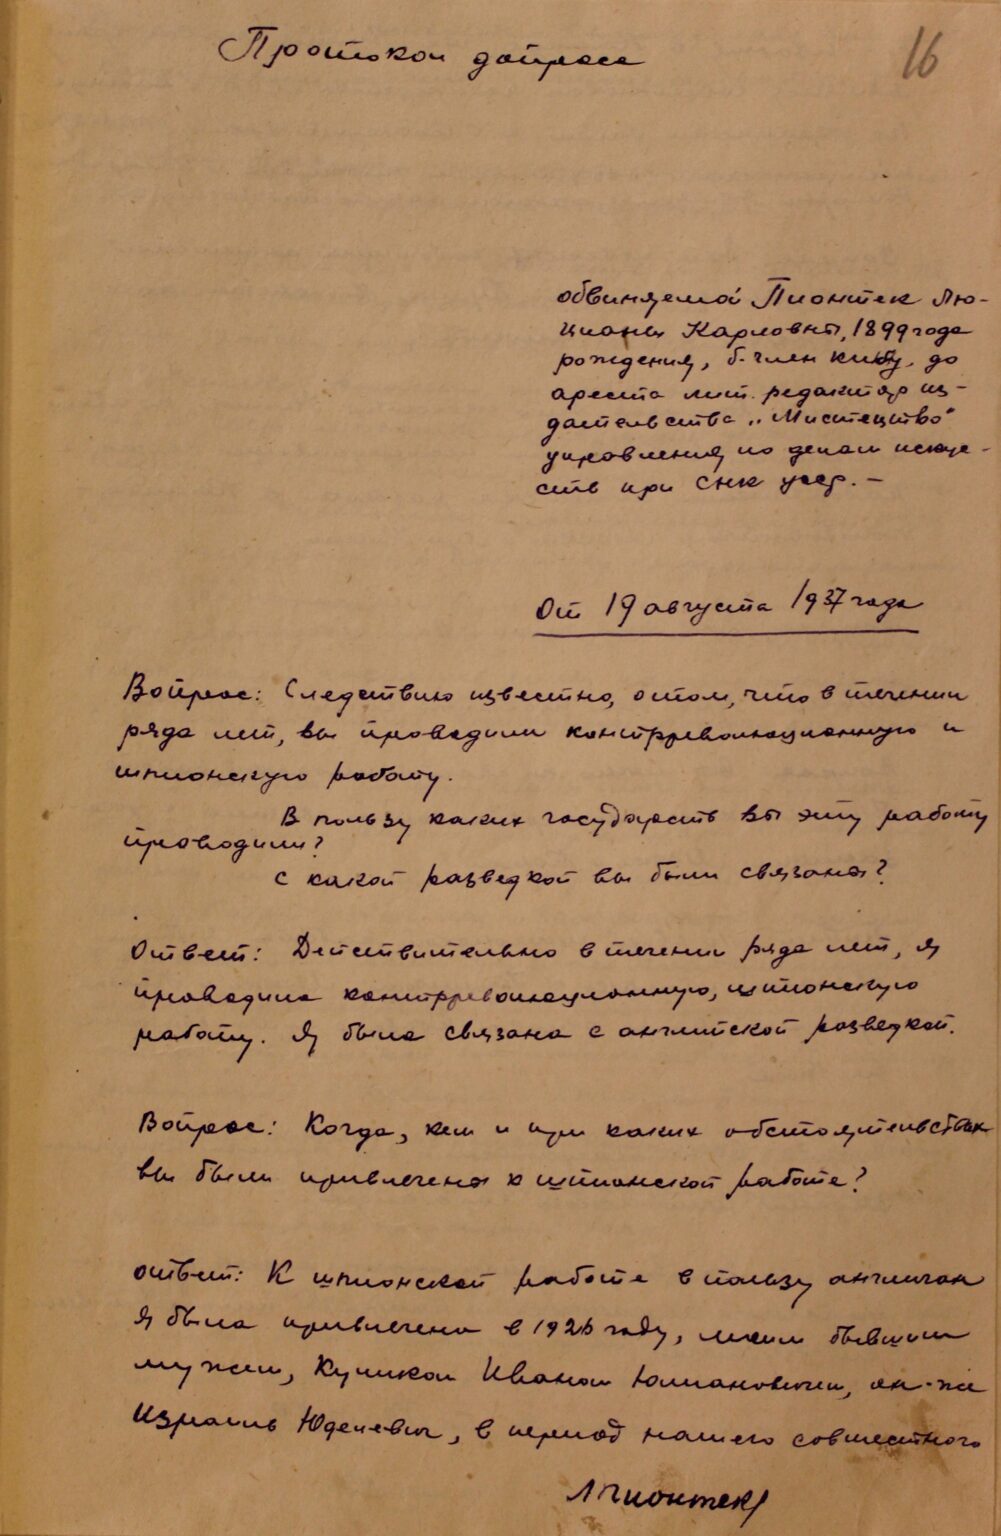 Протокол допроса
16
обвиняемой Пионтек Лю-
цианы Карловны, 1899 года
рождения, б. член КП(б)У, до
ареста лит. редактор из-
дательства „Мистецтво"
управления по делам искус-
ств при СНК УССР. –
От 19 августа 1937 года
Вопрос: Следствию известно, о том, что в течении
ряда лет, вы проводили контрреволюционную и
шпионскую работу.
В пользу каких государств вы эту работу
проводили?
С какой разведкой вы были связаны?
Ответ: Действительно в течении ряда лет, я
проводила контрреволюционную, шпионскую
работу. Я была связана с английской разведкой.
Вопрос: Когда, кем и при каких обстоятельствах
вы были привлечены к шпионской работе?
Ответ: К шпионской работе в пользу англичан
я была привлечена в 1926 году, моим бывшим
мужем, Куликом Иваном Юлиановичем, он-же
Израиль Юделевич, в период нашего совместного
ЛПионтек